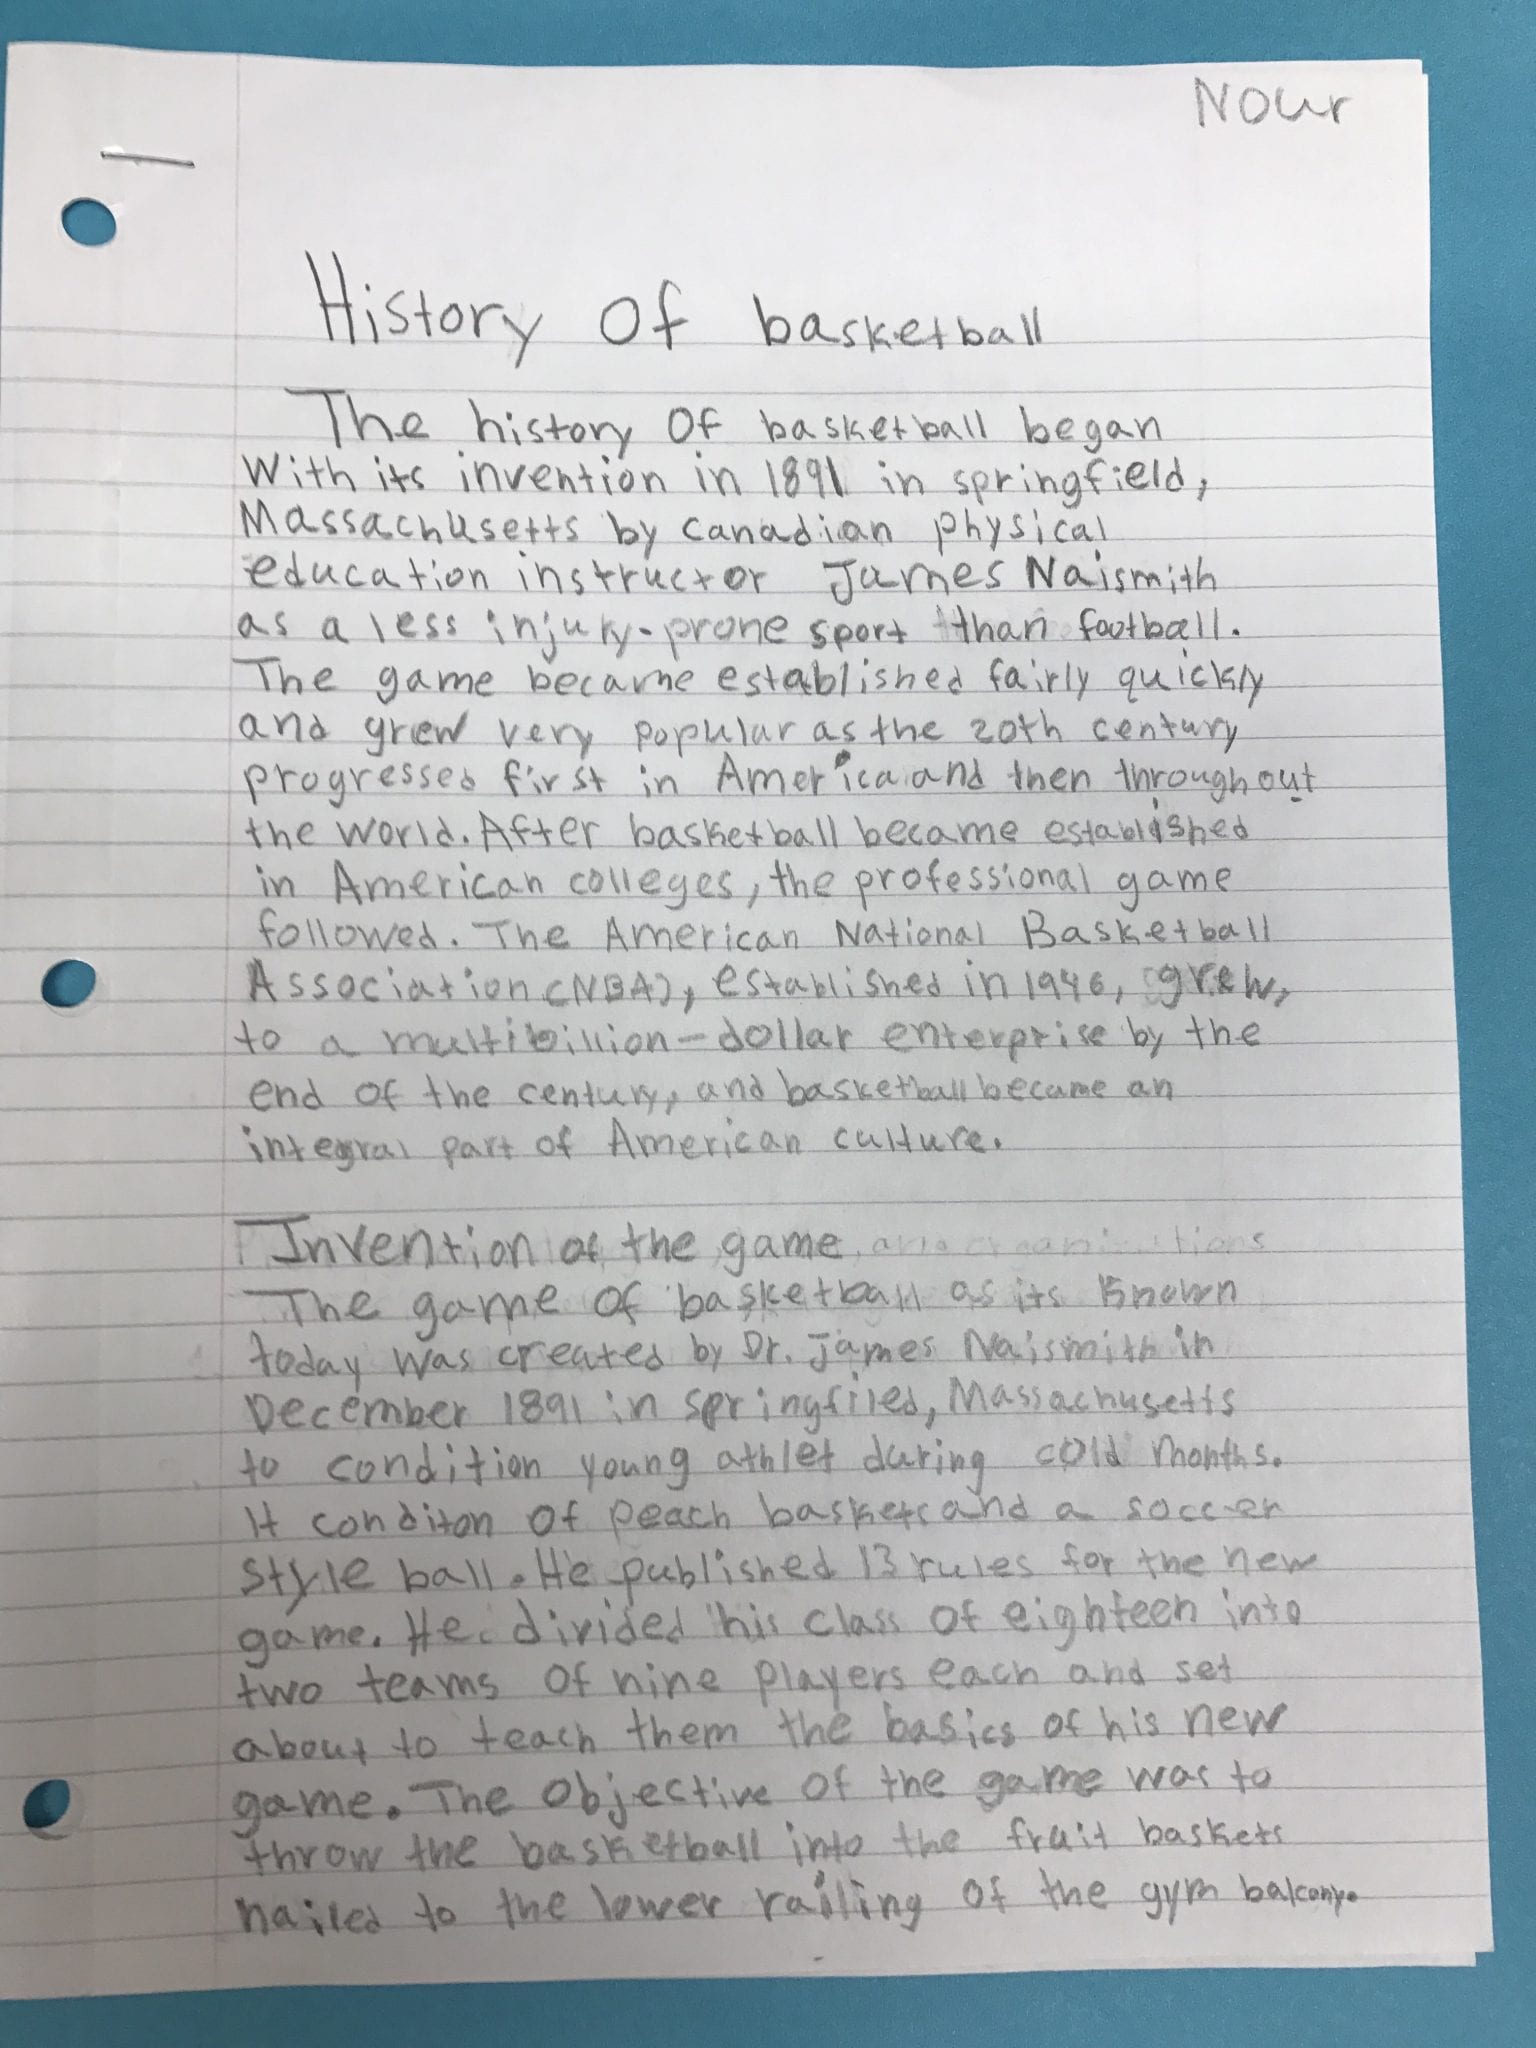 Nour
History Of basketball
The history Of basketball began
With its invention in 1891 in springfield,
Massachusetts by canadian physical
education instructor James Naismith
as a less injury-prone sport than football.
The game became established fairly quickly
and grew very popular as the 20th century
progressed first in America and then throughout
the world. After basketball became established
in American colleges, the professional game
followed. The American National Basketball
Association (NBA), established in 1946, grew,
to a multibillion-dollar enterprise by the
end of the century, and basketball became an
integral part of American culture.
Invention of the game
The game of basketball as its known
today was created by Dr. James Naismith in
December 1891 in springfiled, Massachusetts
to condition young athlet during cold months.
It conditon of peach baskets and a soccer
style ball. He published 13 rules for the new
game. He divided his class of eighteen into
two teams of nine players each and set
about to teach them the basics of his new
game. The objective of the game was to
throw the basketball into the fruit baskets
nailed to the lower railing of the gym balcony.